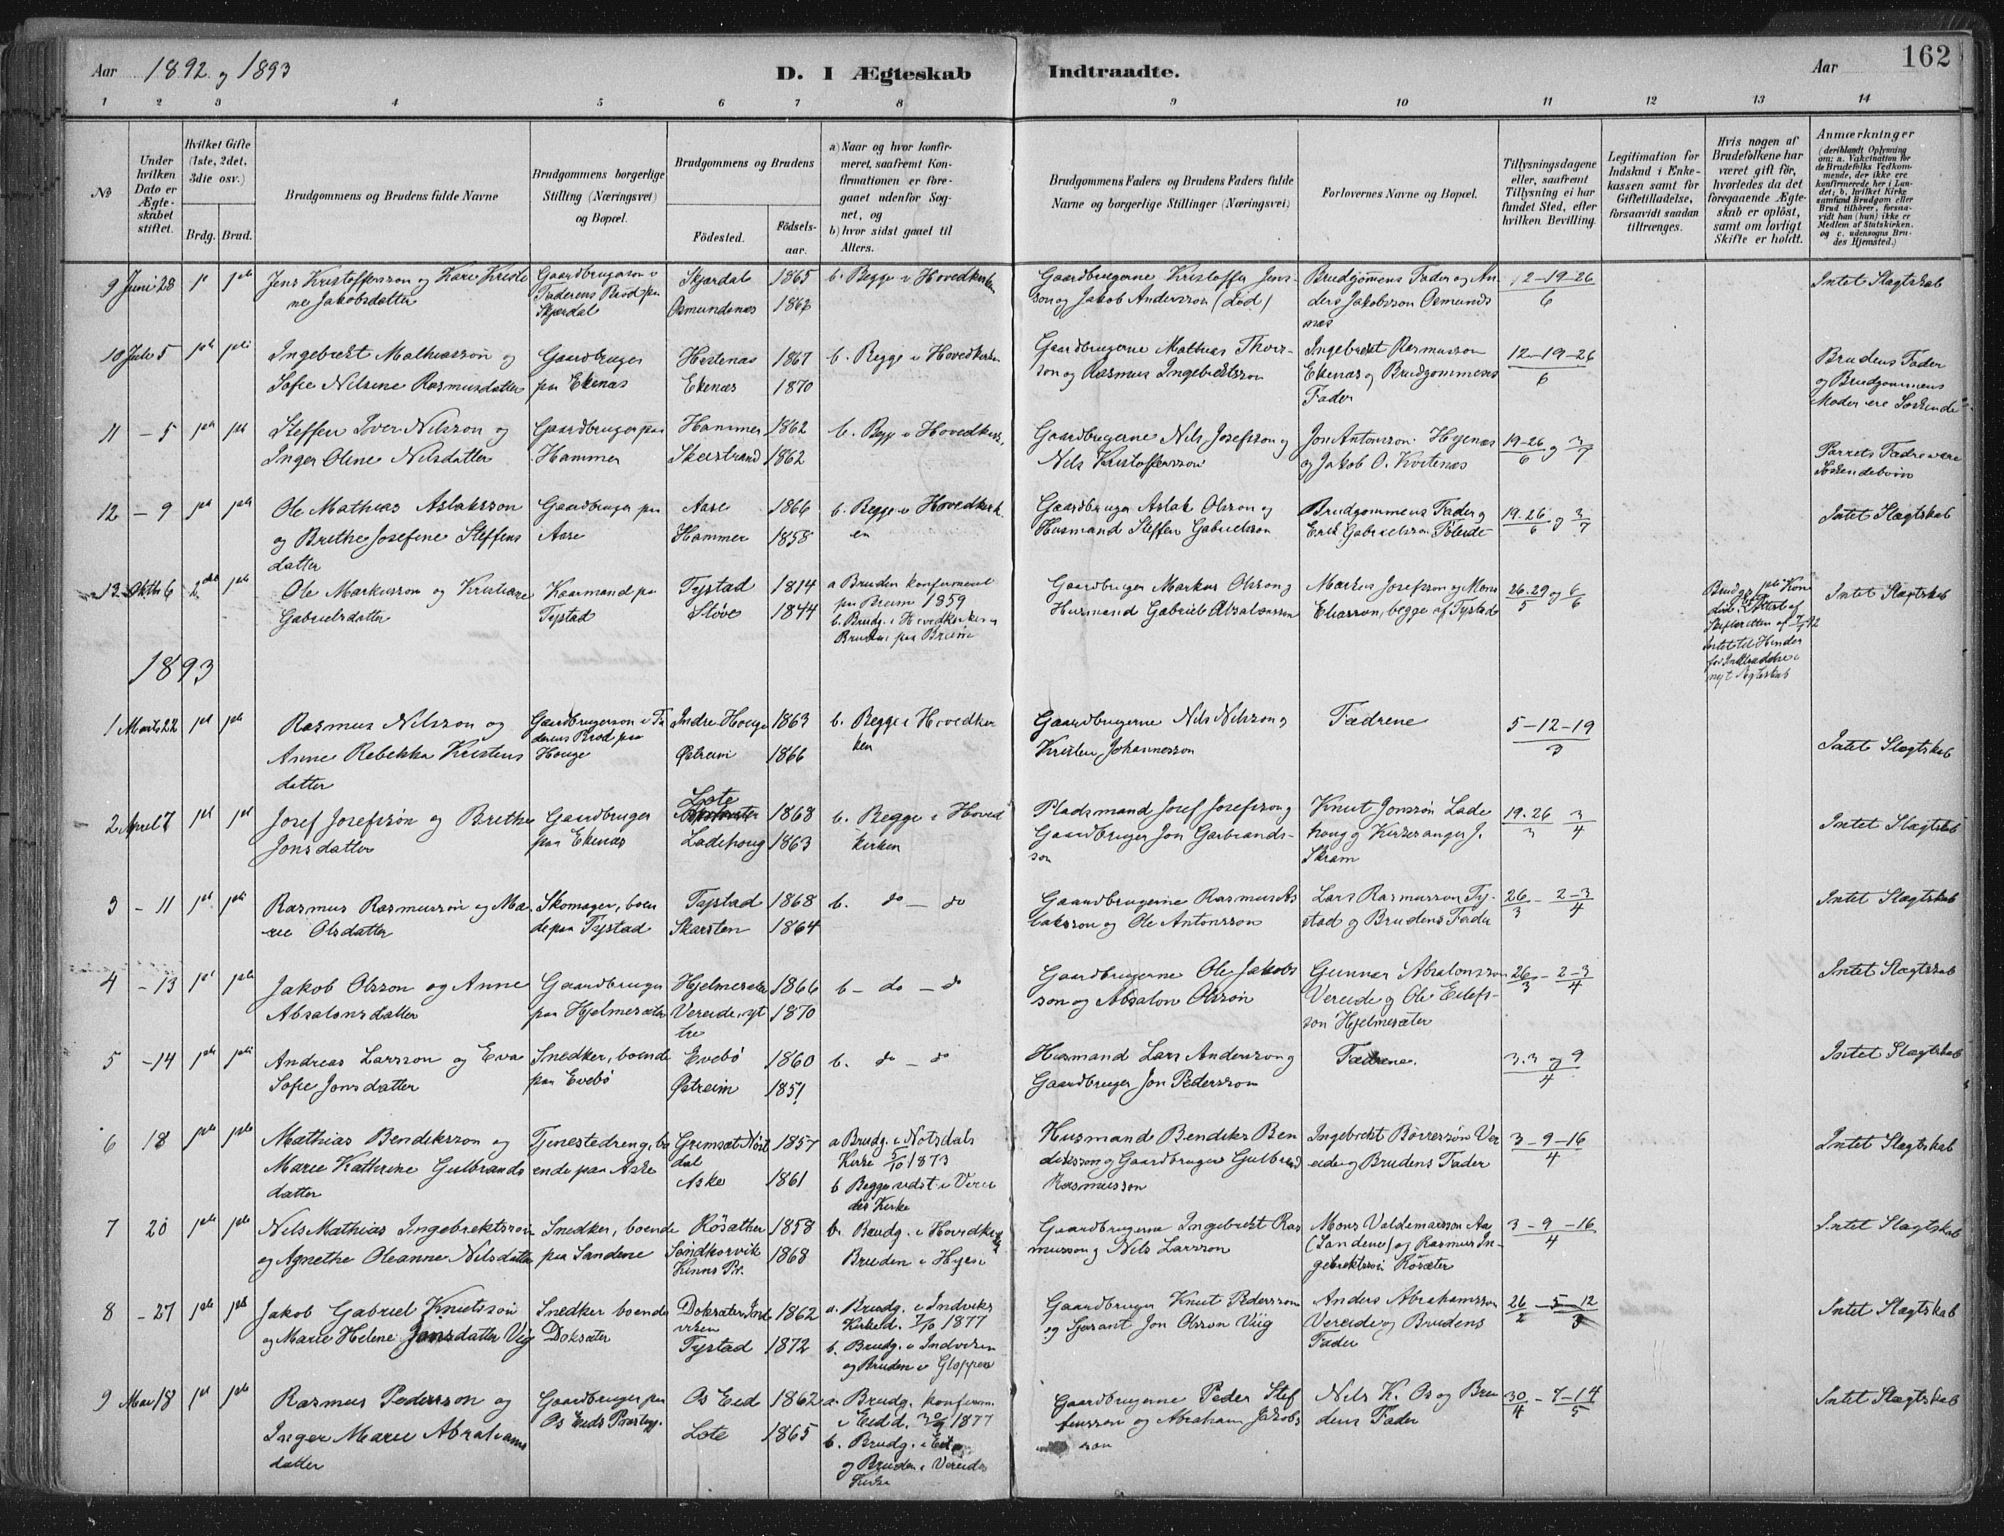 Aar 1892 og 1893
D. I Ægteskab
Indtraadte.
Aar
162
1 2 3 4 5 6 7 8 9 10 11 12 13 14
No
Under hvilken Dato er Ægteskabet stiftet.
Hvilket Gifte (1ste, 2det, 3die osv.)
Brdg. Brud.
Brudgommens og Brudens fulde Navne
Brudgommens borgerlige Stilling (Næringsvei) og Bopæl.
Brudgommens og Brudens
Fødested. Fødsels-aar.
a) Naar og hvor konfirmeret, saafremt Konfirmationen er foregaaet udenfor Sognet, og
b) hvor sidst gaaet til Alters.
Brudgommens Faders og Brudens Faders fulde Navne og borgerlige Stillinger (Næringsvei)
Forlovernes Navne og Bopæl.
Tillysningsdagene eller, saafremt Tillysning ei har fundet Sted, efter hvilken Bevilling.
Legitimation for Indskud i Enkekassen samt for Giftetilladelse, forsaavidt saadan tiltrænges.
Hvis nogen af Brudefolkene har været gift før, hvorledes da det foregaaende Ægteskab er opløst, samt om lovligt Skifte er holdt.
Anmærkninger (deriblandt Oplysning om: a. Vakcination for de Brudefolks Vedkommende, der ikke ere konfirmerede her i Landet; b. hvilket Kirkesamfund Brudgom eller Brud tilhører, forsaavidt han (hun) ikke er Medlem af Statskirken. og c. udensogns Brudes Hjemsted.)
9 Juni 28 Jens Kristoffersson og Kare Kristine Jakobsdatter
Gaardbrugerson i Faderens Brød paa Skjerdal
Skjerdal 1865
Osmundnes 1862
b. Begge i Hovedkirken
Gaardbrugerne Kristoffer Jensson og Jakob Andersson (død)
Brudgommens Fader og Anders Jakobsson Osmundsnes
12-19-26/6
Intet Slægtskab
10 Juli 5 Ingebrekt Mathiasson og Sofie Nilsine Rasmusdatter
Gaardbruger paa Ekenæs
Hestenæs 1867
Ekenæs 1870
b. Begge i Hovedkirken
Gaardbrugerne Mathias Thorsson og Rasmus Ingebrektsson
Ingebrekt Rasmusson Ekenæs og Brudgommens Fader
12-19-26/6
Brudens Fader og Brudgommens Moder ere Søskende
11 - 5 Steffen Iver Nilsson og Inger Oline Nilsdatter
Gaardbruger paa Hammer
Hammer 1862
Skeistrand 1862
b. Begge i Hovedkirk.
Gaardbrugerne Nils Josefsson og Nils Kristoffersson
Jon Antonsson Hyenæs og Jakob O. Kvitenæs
19-26/6 og 3/7
Parrets Fædre vare Søskendebørn
12 - 9 Ole Mathias Aslaksson og Brithe Josefine Steffensdatter
Gaardbruger paa Aase
Aase 1866
Hammer 1858
b. Begge i Hovedkirken
Gaardbruger Aslak Olsson og Husmand Steffen Gabrielsson
Brudgommens Fader og Erik Gabrielsson Føleide
19.26/6 og 3/7
Intet Slægtskab
13 Oktb 6 Ole Markusson og Kristiane Gabrielsdatter
Kaarmand paa Tystad
Tystad 1814
Støve 1844
a Bruden konfirmeret paa Breim 1859
b. Brudg. i Hovedkirken Bruden paa Breim
Gaardbruger Markus Olsson og Husmand Gabriel Absalonsson
Markus Josefsson og Mons Eliasson, begge af Tystad
26.29/5 og 6/6
Intet til Hinder for Indtrædelse i nyt Ægteskab
Intet Slægtskab
1893
1 Marts 22 Rasmus Nilsson og Anne Rebekka Kristensdatter
Gaardbrugerson i Faderens Brød paa Houge
Indre Houge 1863
Østreim 1866
b. Begge i Hovedkirken
Gaardbrugerne Nils Nilsson og Kristen Johannesson
Fædrene
5-12-19/3
Intet Slægtskab
2 April 7 Josef Josefsøn og Brithe Jonsdatter
Gaardbruger paa Ekenæs
Lote 1868
Ladehoug 1863
b. Begge i Hovedkirken
Pladsmand Josef Josefsson og Gaardbruger Jon Garbrandsson
Knut Jonsson Ladehoug og Kirkesanger J. Skram
19.26/3 3/4
Intet Slægtskab
3 - 11 Rasmus Rasmusson og Marie Olsdatter
Skomager, boende paa Tystad
Tystad 1868
Skarsten 1864
b. do - do
Gaardbrugerne Rasmus Aslaksson og Ole Antonsson
Lars Rasmusson Tystad og Brudens Fader
26/3 - 2-3/4
Intet Slægtskab
4 - 13 Jakob Olsson og Anne Absalonsdatter
Gaardbruger paa Hjelmesæter
Hjelmesæter 1866
Vereide, yttre 1870
b - do - do
Gaardbrugerne Ole Jakobsson og Absalon Olsson
Gunnar Absalonsson Vereide og Ole Eilefsson Hjelmesæter
26/3 - 2-3/4
Intet Slægtskab
5 - 14 Andreas Larsson og Eva Sofie Jonsdatter
Snedker, boende paa Evebø
Evebø 1860
Østreim 1851
b. do - do
Husmand Lars Andersson og Gaardbruger Jon Pedersson
Fædrene.
3.3 og 9/4
Intet Slægtskab
6 18 Mathias Bendiksson og Marie Katherine Gulbrandsdatter
Tjenestedreng, boende paa Aske
1857
Aske 1861
a Brudg. i Kirke 5/10 1873
b Begge sidst i Vereides Kirke
Husmand Bendiks Bendiksson og Gaardbruger Gulbrand Rasmusson
Ingebrekt Børresson Vereide og Brudens Fader
3-9-16/4
Intet Slægtskab
7 20 Nils Mathias Ingebrektsson og Agnethe Oleanne Nilsdatter
Snedker, boende paa Sandene
Røsæther 1858
Kinns Pr. 1868
b. Brudg. i Hovedkirken Bruden i Hyen
Gaardbrugerne Ingebrekt Rasmusson og Nils Larsson
Mons Valdemarsson Aa (Sandene) og Rasmus Ingebrektsson Røsæter
3-9-16/4
Intet Slægtskab
8 - 27 Jakob Gabriel Knutsson og Marie Helene Jonsdatter Vig
Snedker boende Doksæter
Doksæter Indviken 1862
Tystad 1872
a. Brudg. i Indviks Kirke d. 7/10 1877
b. Brudg. i Indviken og Bruden i Gloppen
Gaardbruger Knut Pedersson og Sersant Jon Olsson Viig
Anders Abrahamsson Vereide og Brudens Fader
26/2 - 5-12/3
Intet Slægtskab
9 Mai 18 Rasmus Pedersson og Inger Marie Abrahamsdatter
Gaardbruger paa Os Eids Præstegj.
Os Eid 1862
Lote 1865
a. Brudg. konfirm. i Eid d. 30/9 1877
b. Brudg. i Eid og Bruden i Vereides Kirke
Gaardbrugerne Peder Steffensson og Abraham Jakobsson
Nils K. Os og Brudens Fader
30/4 - 7-14/5
Intet Slægtskab